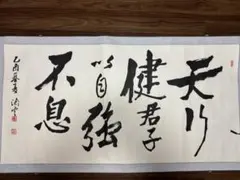 天行
健君子
以自強
不息
乙酉春月